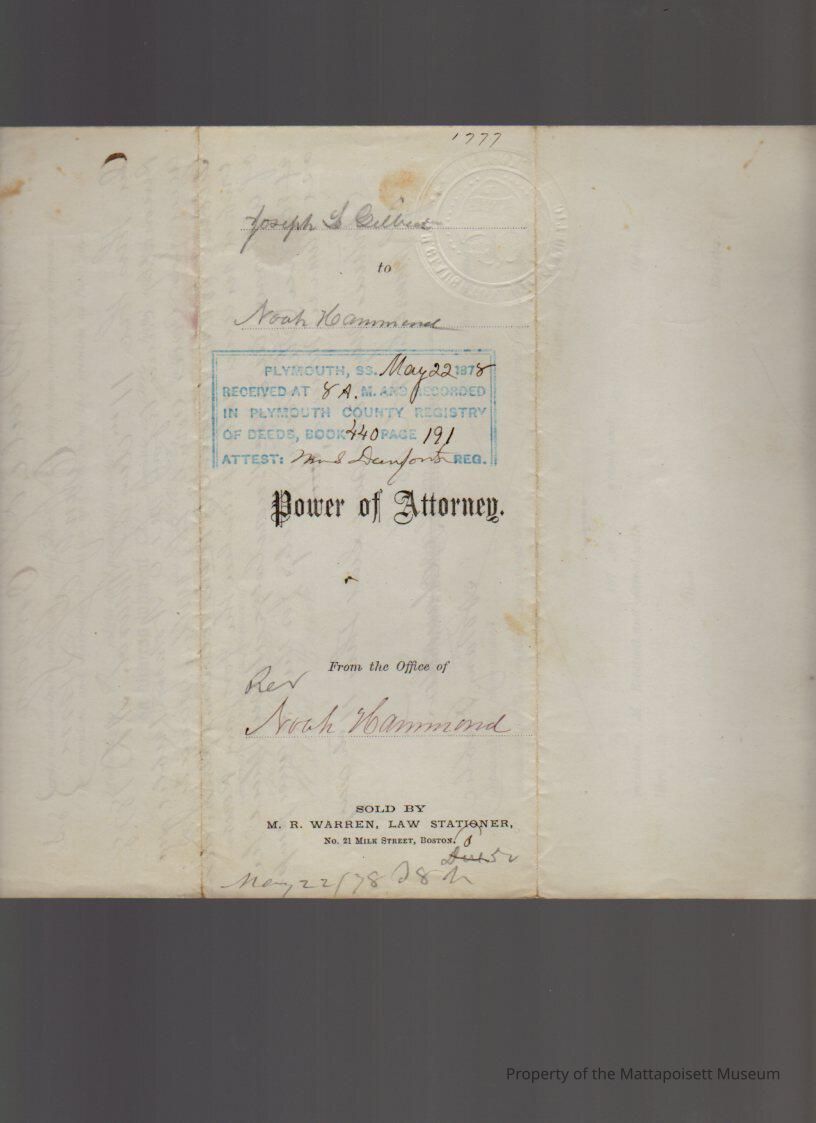 1777
Joseph L Gilbert
to
Noah Hammond
PLYMOUTH, SS. May 22 1878
RECEIVED AT 8 A. M. AND RECORDED
IN PLYMOUTH COUNTY REGISTRY
OF DEEDS, BOOK 440 PAGE 191
ATTEST: Wm S Danforth REG.
Power of Attorney.
From the Office of
Rev
Noah Hammond
SOLD BY
M. R. WARREN, LAW STATIONER,
No. 21 MILK STREET, BOSTON.
May 22/78
Property of the Mattapoisett Museum